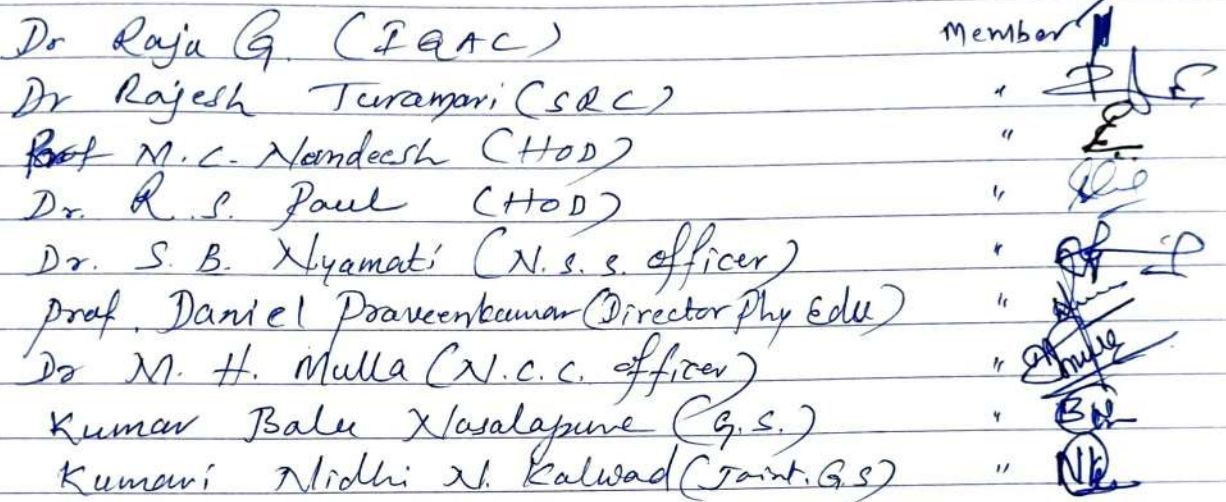 Dr Raja G. (IQAC) Member
Dr Rajesh Turamari (SRC) "
Prof M.C. Nandeesh (HOD) "
Dr. R.S. Paul (HOD) "
Dr. S.B. Nyamati (N.S.S. officer) "
Prof. Daniel Praveenkumar (Director Phy Edu) "
Dr M.H. Mulla (N.C.C. officer) "
Kumar Balu Nasalapure (G.S.) "
Kumari Nidhi N. Kalwad (Joint. G.S) "